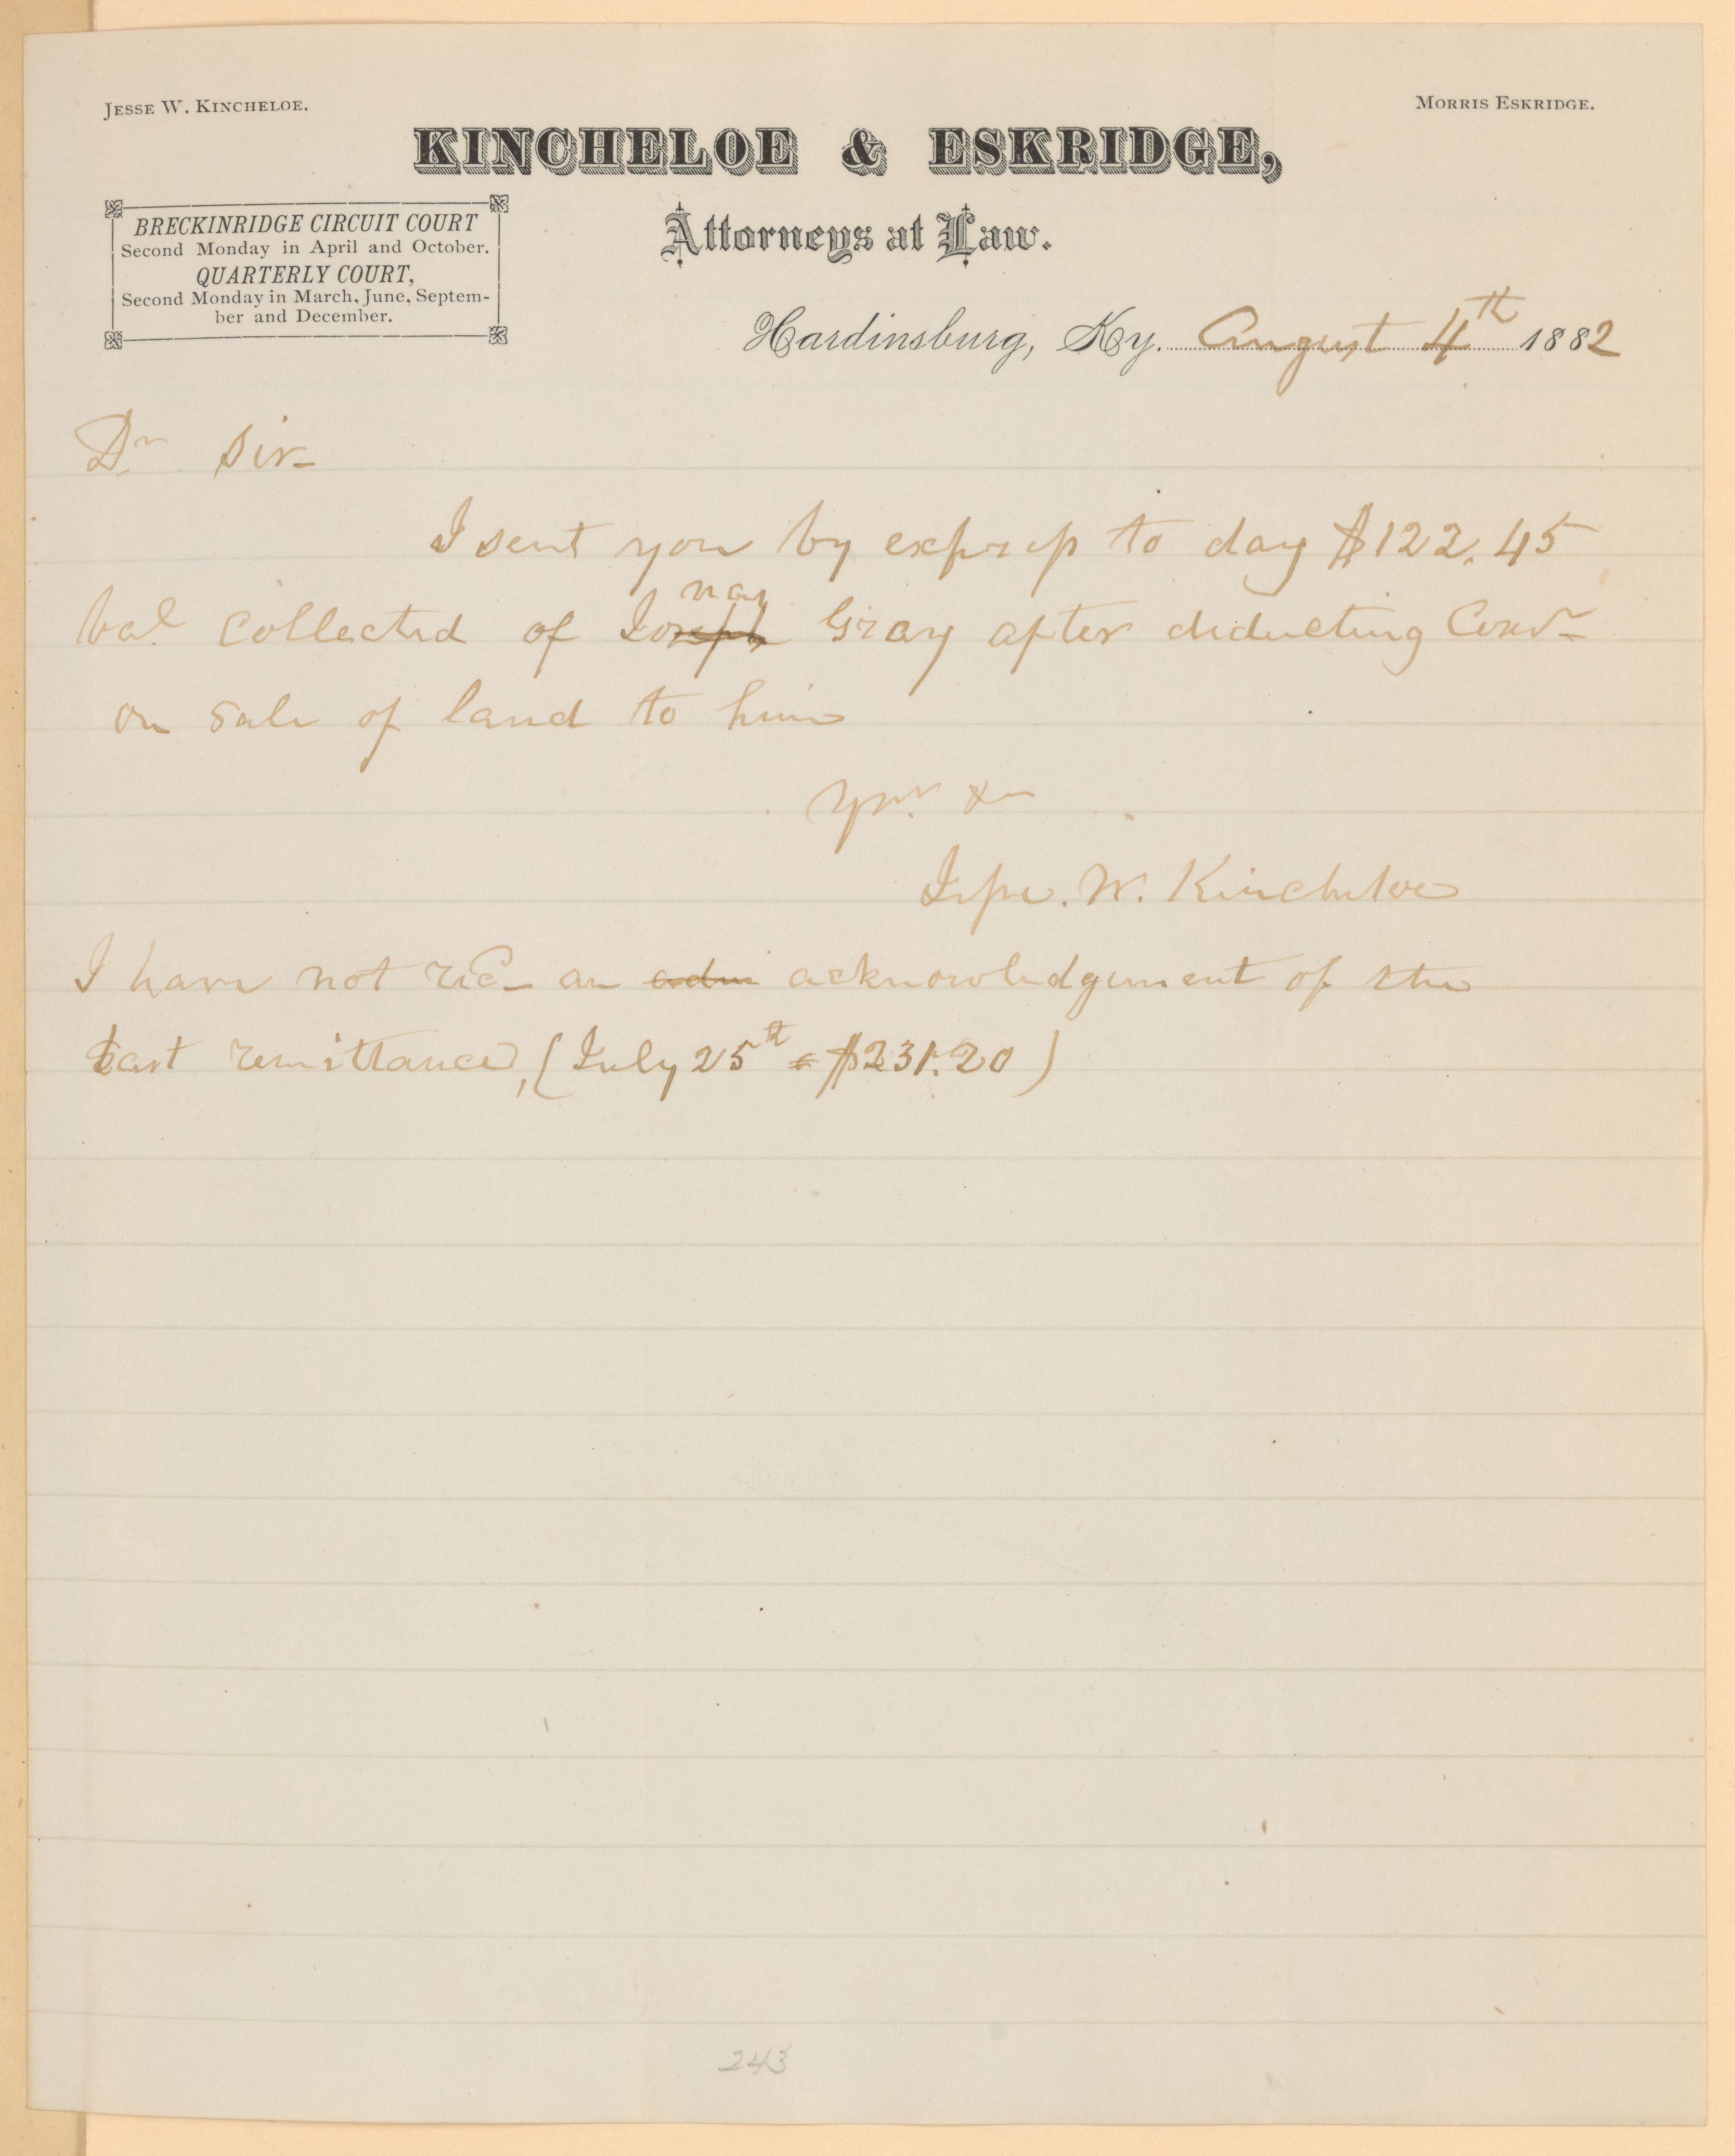 JESSE W. KINCHELOE.
MORRIS ESKRIDGE.
KINCHELOE & ESKRIDGE,
Attorneys at Law.
BRECKINRIDGE CIRCUIT COURT
Second Monday in April and October.
QUARTERLY COURT,
Second Monday in March, June, Septem-
ber and December.
Hardinsburg, Ky. August 4th 1882
Dr Sir-
I sent you by express to day $122.45
bal collected of Jonas Gray after deducting Comr
on sale of land to him
Yrs &c
Jesse. W. Kincheloe
I have not rec- an adm acknowledgement of the
last remittance, (July 25th = $231.20)
243